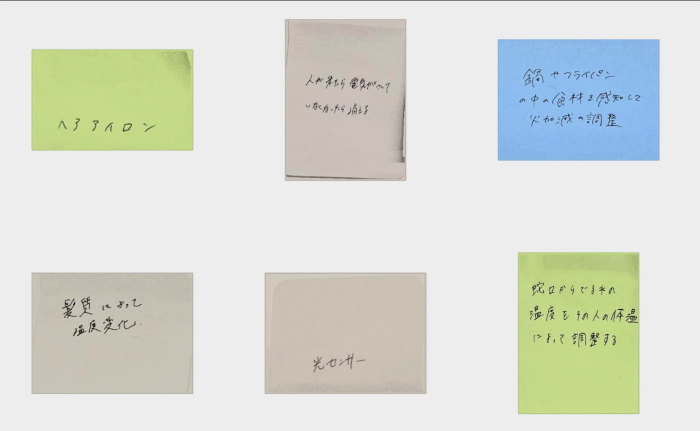 ヘアアイロン
人が来たら電気がついて
いなくなったら消える
鍋やフライパン
の中の食材を感知して
火加減の調整
髪質によって
温度変化
光センサー
蛇口からでる水の
温度をその人の体温
によって調整する